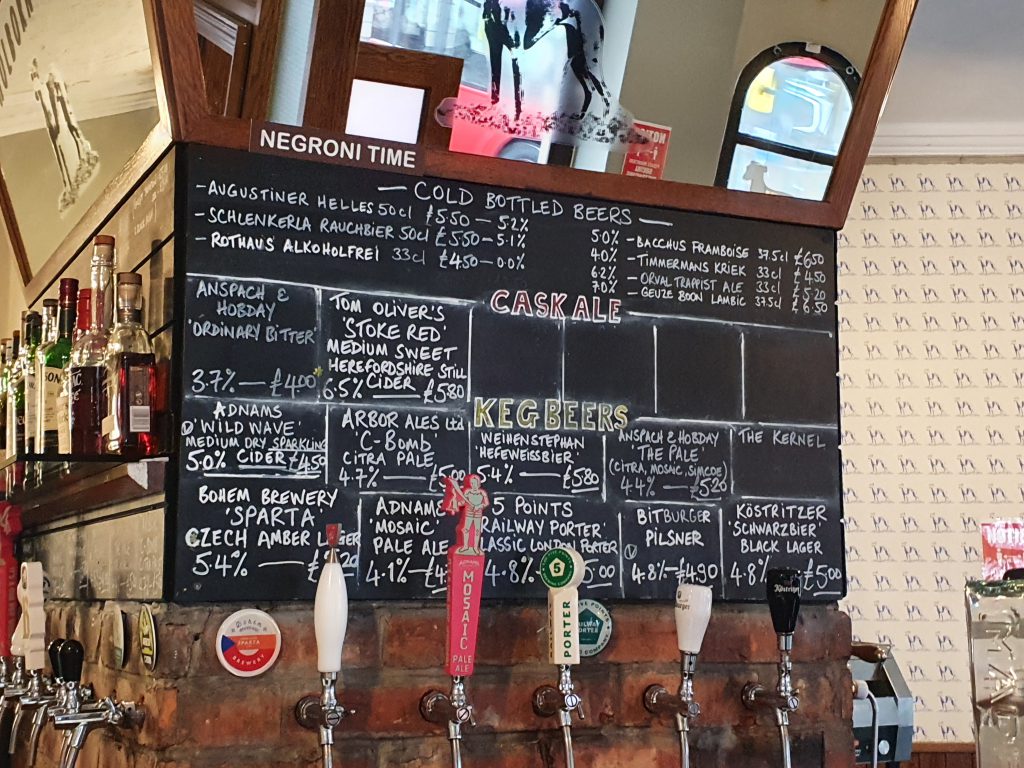 NEGRONI TIME
— COLD BOTTLED BEERS —
-AUGUSTINER HELLES 50cl £5.50 — 5.2%
-SCHLENKERLA RAUCHBIER 50cl £5.50 — 5.1%
-ROTHAUS ALKOHOLFREI 33cl £4.50 — 0.0%
5.0% -BACCHUS FRAMBOISE 37.5cl £6.50
4.0% -TIMMERMANS KRIEK 33cl £4.50
6.2% -ORVAL TRAPPIST ALE 33cl £5.20
7.0% -GEUZE BOON LAMBIC 37.5cl £6.50
CASK ALE
ANSPACH &
HOBDAY
'ORDINARY BITTER'
3.7% — £4.00
TOM OLIVER'S
'STOKE RED'
MEDIUM SWEET
HEREFORDSHIRE STILL
6.5% CIDER £5.80
KEG BEERS
ADNAMS
'WILD WAVE'
MEDIUM DRY SPARKLING
5.0% CIDER £4.50
ARBOR ALES Ltd
'C-BOMB'
CITRA PALE
4.7% — £5.00
WEIHENSTEPHAN
'HEFEWEISSBIER'
5.4% — £5.80
ANSPACH & HOBDAY
'THE PALE'
(CITRA, MOSAIC, SIMCOE)
4.4% — £5.20
THE KERNEL
BOHEM BREWERY
'SPARTA'
CZECH AMBER LAGER
5.4% — £
ADNAMS
'MOSAIC'
PALE ALE
4.1% — £4.
5 POINTS
'RAILWAY PORTER'
CLASSIC LONDON PORTER
4.8% 5.00
BITBURGER
PILSNER
4.8% — £4.90
KÖSTRITZER
'SCHWARZBIER'
BLACK LAGER
4.8% — £5.00
SPARTA
BREWERY
ADNAMS
MOSAIC
PALE
ALE
5
PORTER
PORTER